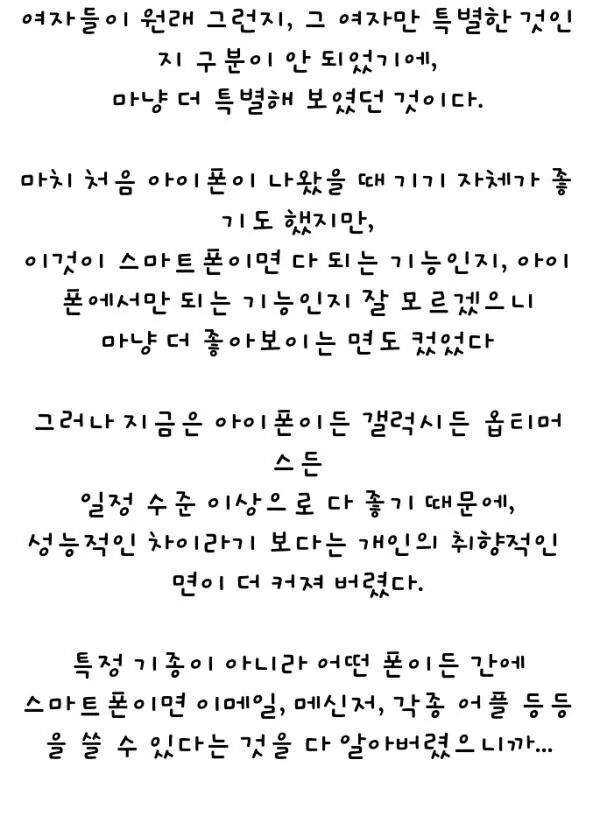 여자들이 원래 그런지, 그 여자만 특별한 것인
지 구분이 안 되었기에,
마냥 더 특별해 보였던 것이다.
마치 처음 아이폰이 나왔을 때 기기 자체가 좋
기도 했지만,
이것이 스마트폰이면 다 되는 기능인지, 아이
폰에서만 되는 기능인지 잘 모르겠으니
마냥 더 좋아보이는 면도 컸었다
그러나 지금은 아이폰이든 갤럭시든 옵티머
스든
일정 수준 이상으로 다 좋기 때문에,
성능적인 차이라기 보다는 개인의 취향적인
면이 더 커져 버렸다.
특정 기종이 아니라 어떤 폰이든 간에
스마트폰이면 이메일, 메신저, 각종 어플 등등
을 쓸 수 있다는 것을 다 알아버렸으니까...